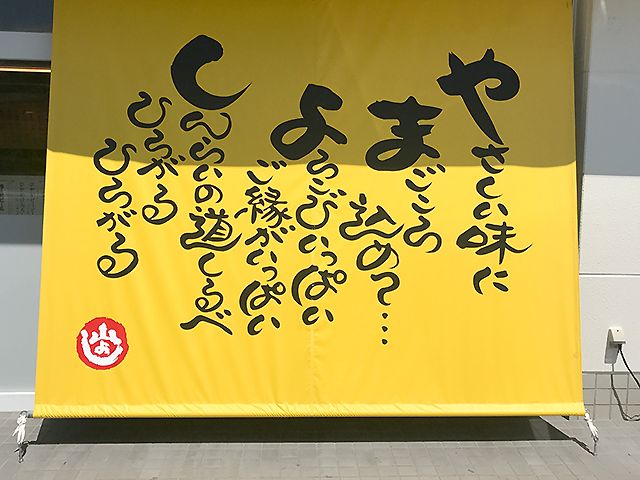 やさしい味に
まごころ
込めて…
よろこびいっぱい
ご縁がいっぱい
しんらいの道しるべ
ひろがる
ひろがる
山よし